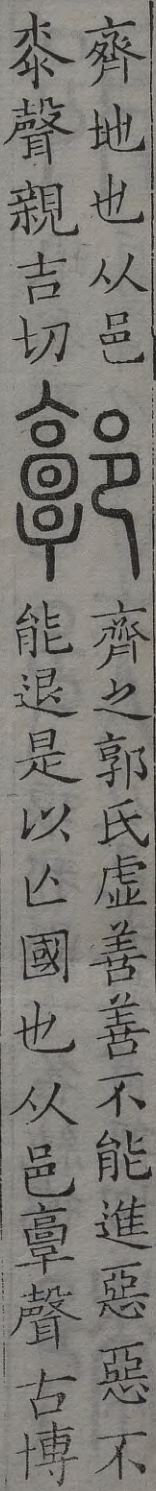 齊地也从邑
桼聲親吉切
郭
齊之郭氏虛善善不能進惡惡不
能退是以亾國也从邑𩫏聲古博